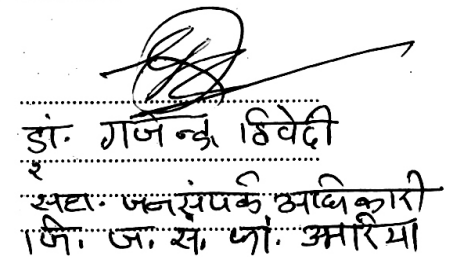 डॉ. गजेन्द्र द्विवेदी
सहा. जनसंपर्क अधिकारी
जि. ज. सं. का. उमरिया